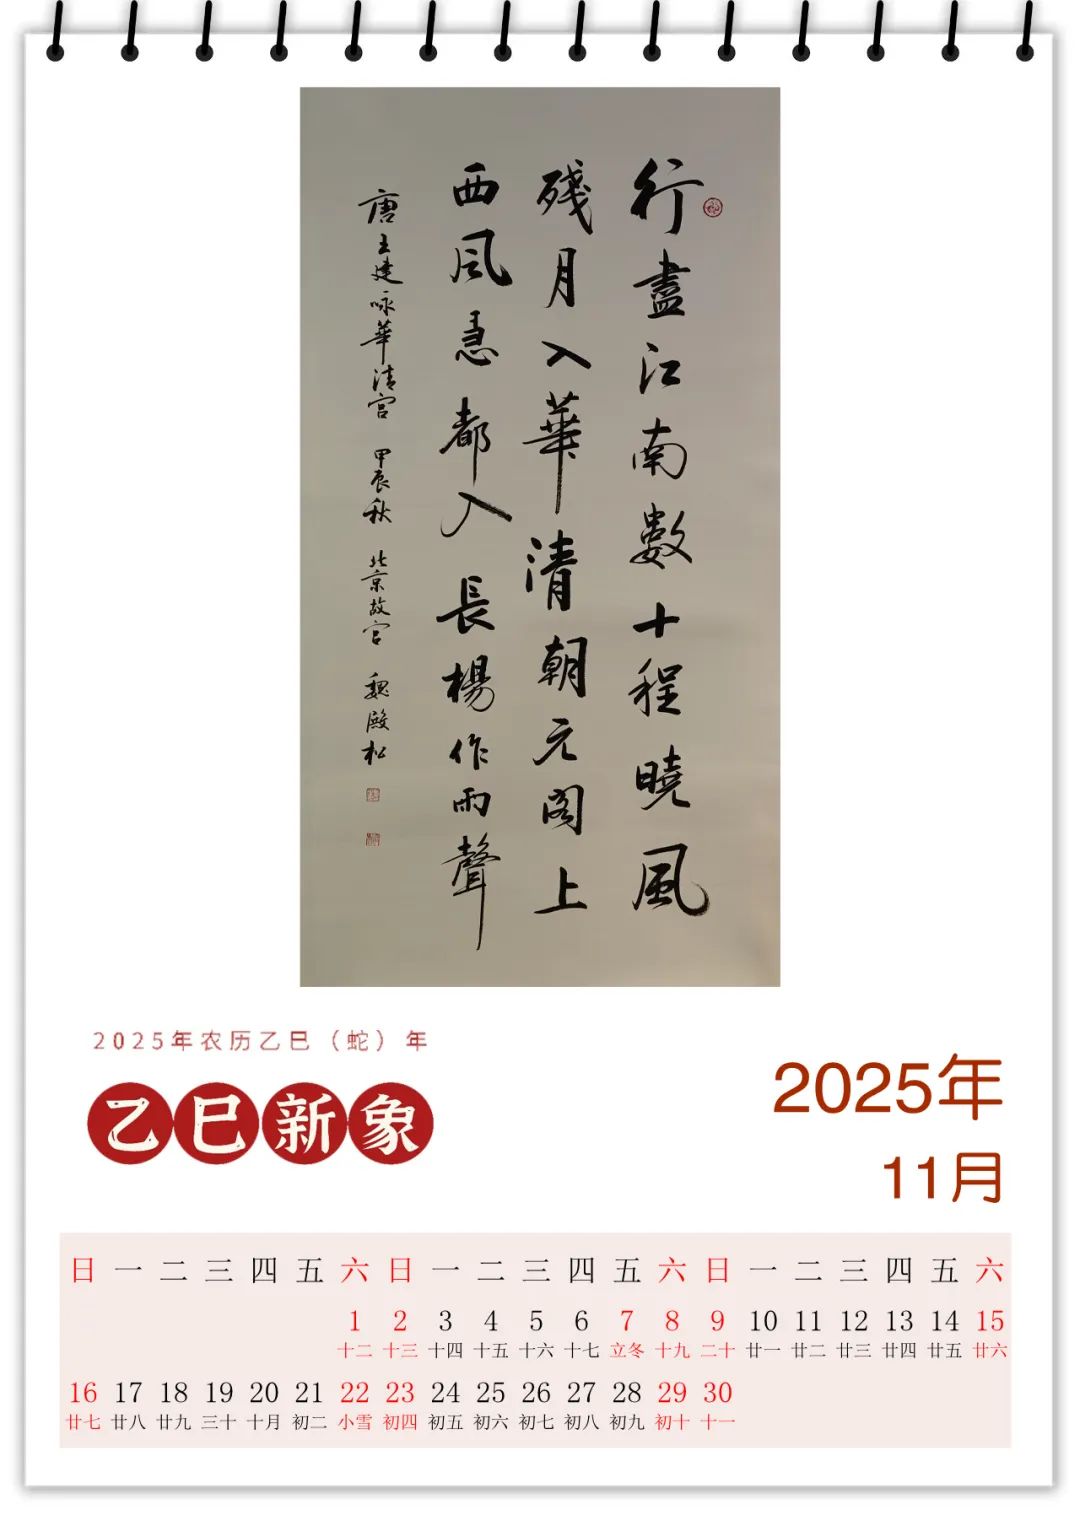 行盡江南數十程曉風
殘月入華清朝元閣上
西风急都入長楊作雨聲
唐王建咏華清宫 甲辰秋 北京故宫 魏殿松
2025年农历乙巳（蛇）年
乙巳新象
2025年
11月
日 一 二 三 四 五 六 日 一 二 三 四 五 六 日 一 二 三 四 五 六
1 2 3 4 5 6 7 8 9 10 11 12 13 14 15
十二 十三 十四 十五 十六 十七 立冬 十九 二十 廿一 廿二 廿三 廿四 廿五 廿六
16 17 18 19 20 21 22 23 24 25 26 27 28 29 30
廿七 廿八 廿九 三十 十月 初二 小雪 初四 初五 初六 初七 初八 初九 初十 十一